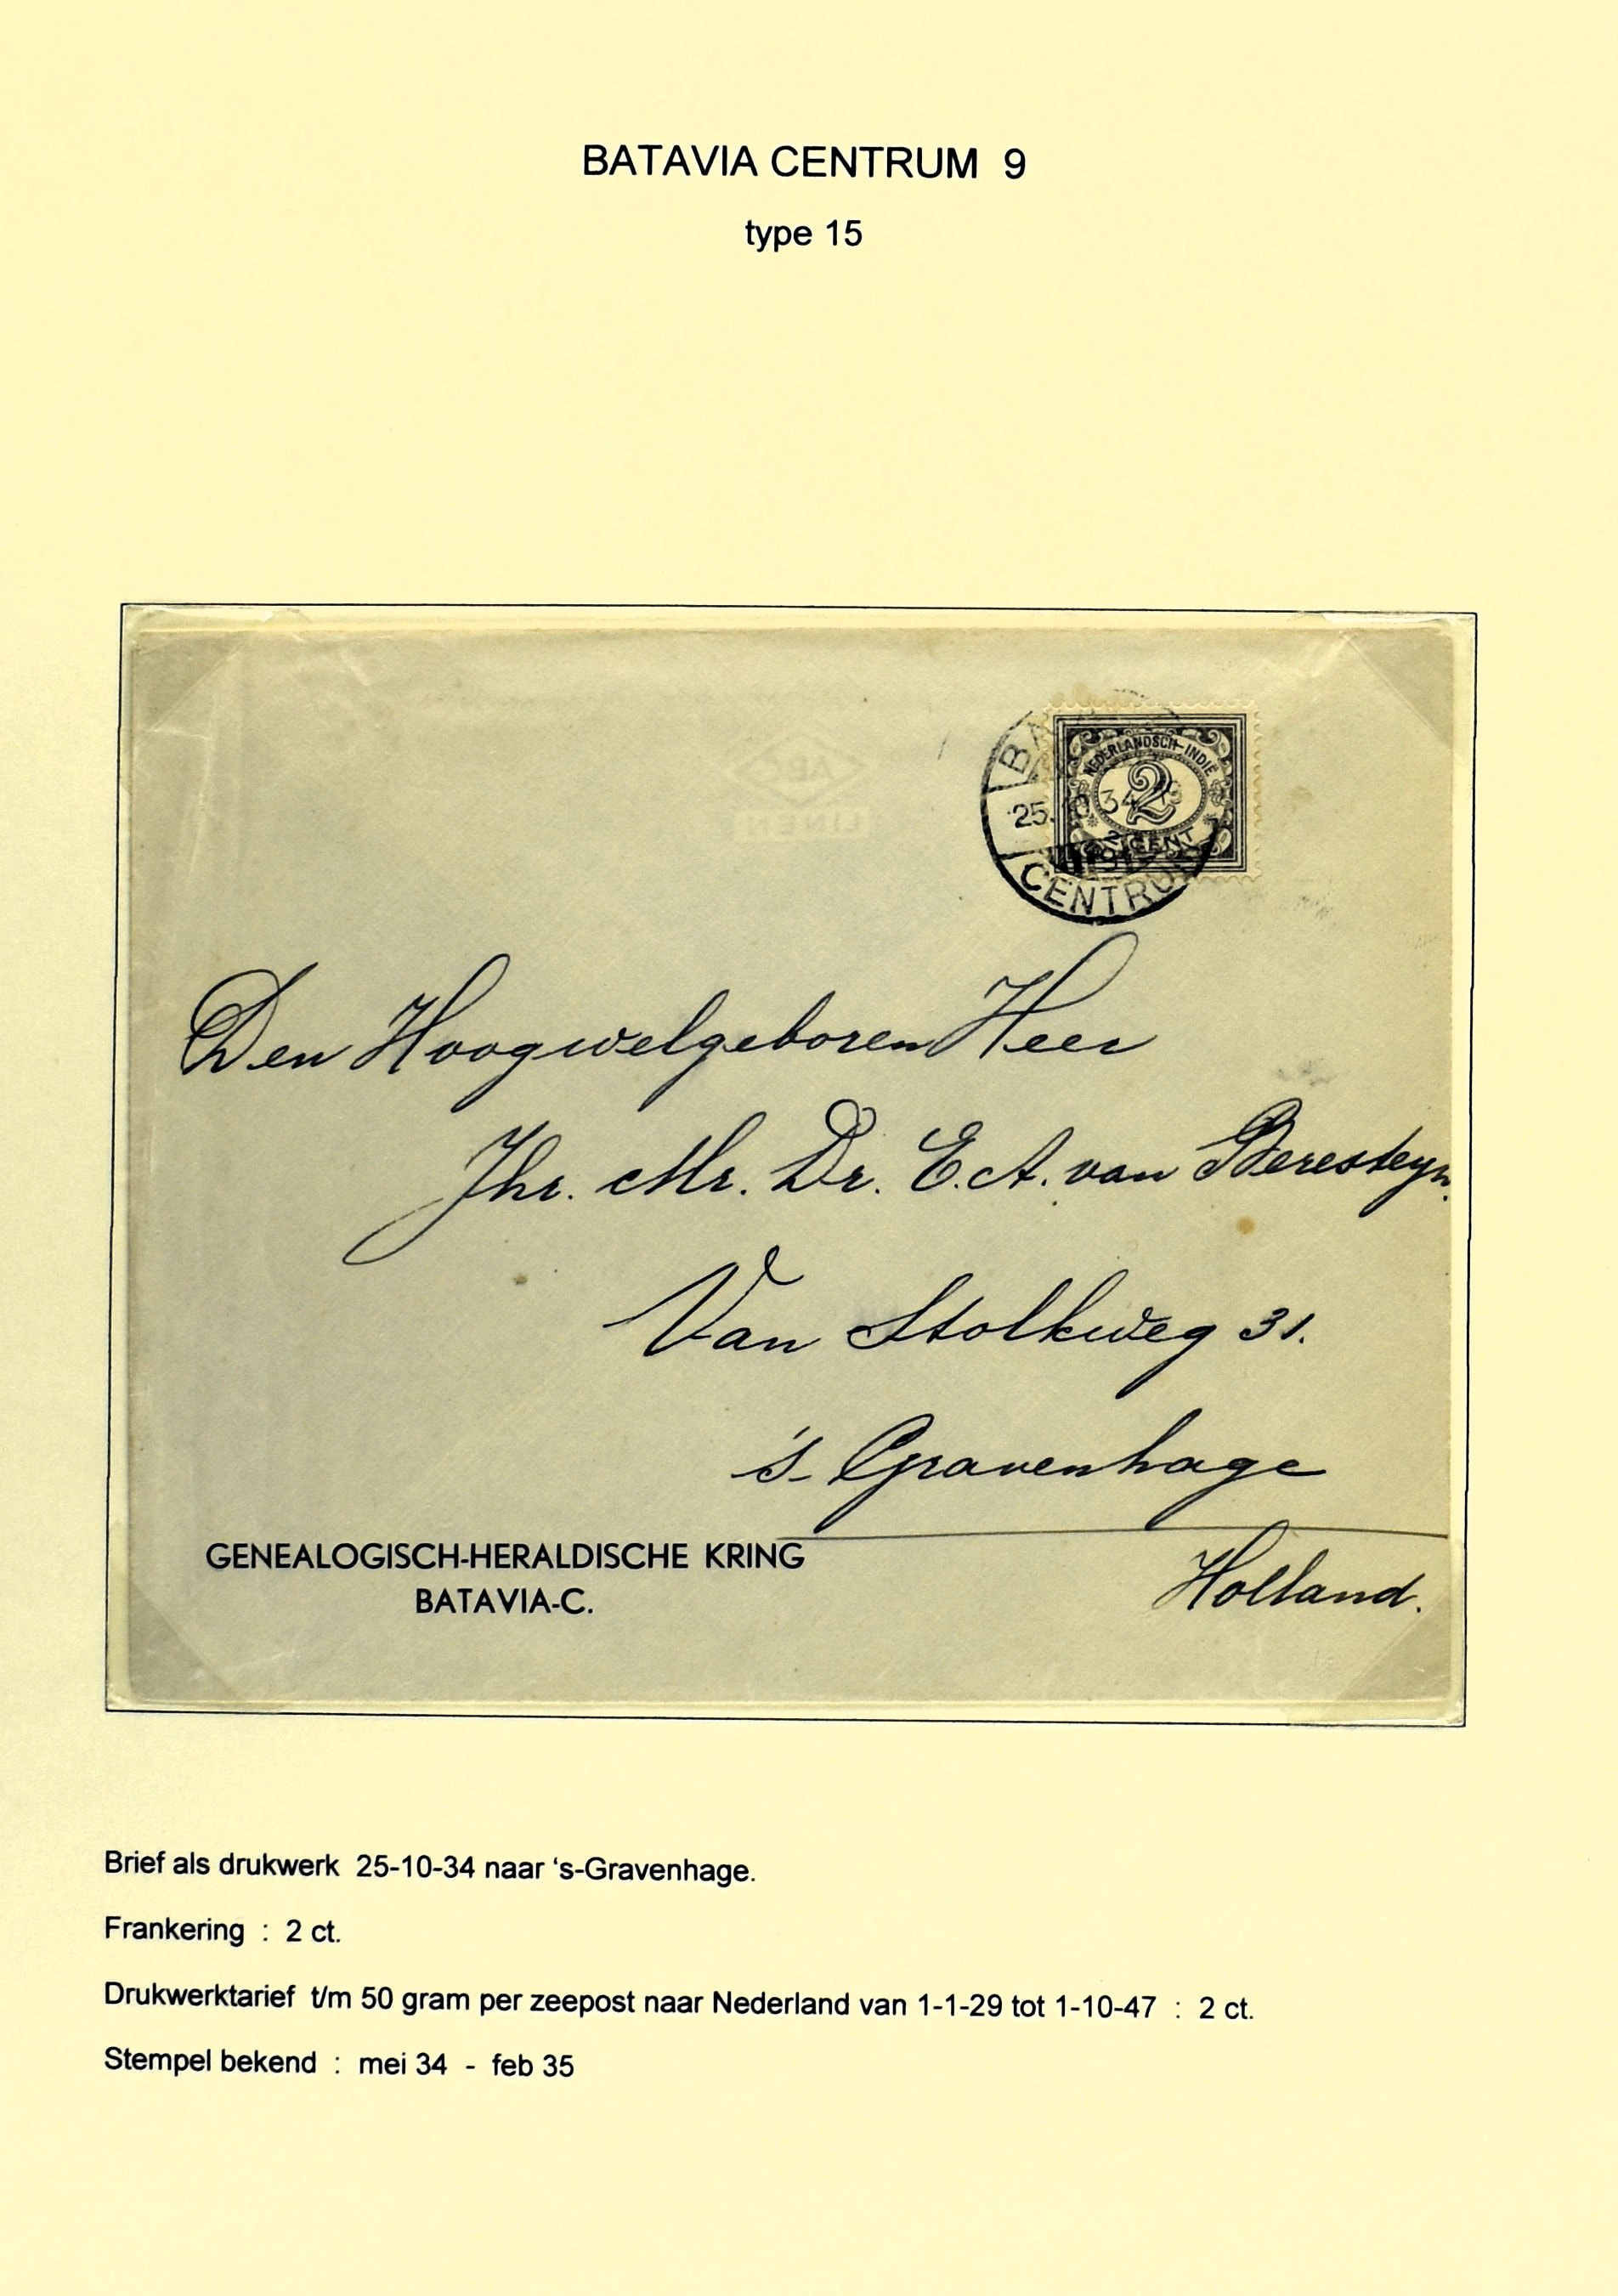 BATAVIA CENTRUM 9
type 15
NEDERLANDSCH-INDIË
2
CENT
25. 10 34
CENTRUM
ABC
LINEN
Den Hoogwelgeboren Heer
Jhr. Mr. Dr. E.A. van Beresteyn.
Van Stolkweg 31.
's-Gravenhage
Holland.
GENEALOGISCH-HERALDISCHE KRING
BATAVIA-C.
Brief als drukwerk 25-10-34 naar ‘s-Gravenhage.
Frankering : 2 ct.
Drukwerktarief t/m 50 gram per zeepost naar Nederland van 1-1-29 tot 1-10-47 : 2 ct.
Stempel bekend : mei 34 - feb 35